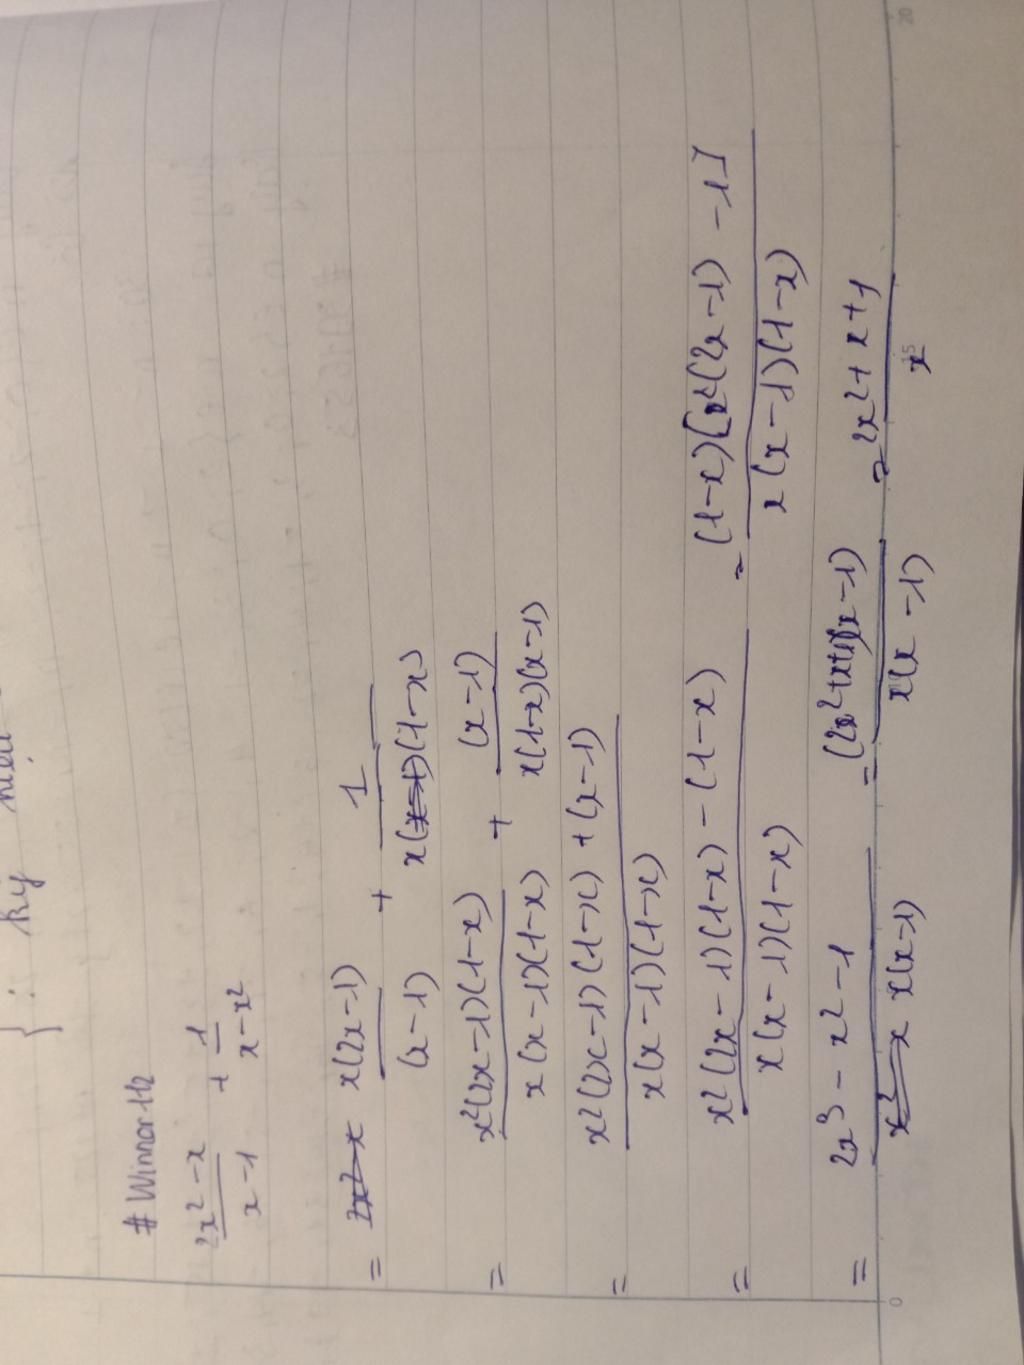 : ký hiệu
# Winner112
(2x² - x)/(x - 1) + 1/(x - x²)
= x(2x-1)/(x-1) + 1/(x(1-x))
= x²(2x-1)(1-x)/(x(x-1)(1-x)) + (x-1)/(x(1-x)(x-1))
= (x²(2x-1)(1-x) + (x-1))/(x(x-1)(1-x))
= (x²(2x-1)(1-x) - (1-x))/(x(x-1)(1-x)) = (1-x)[x²(2x-1) - 1]/(x(x-1)(1-x))
= (2x³ - x² - 1)/(x(x-1)) = (2x²+x+1)(x-1)/(x(x-1)) = (2x²+x+1)/x
0 15 20